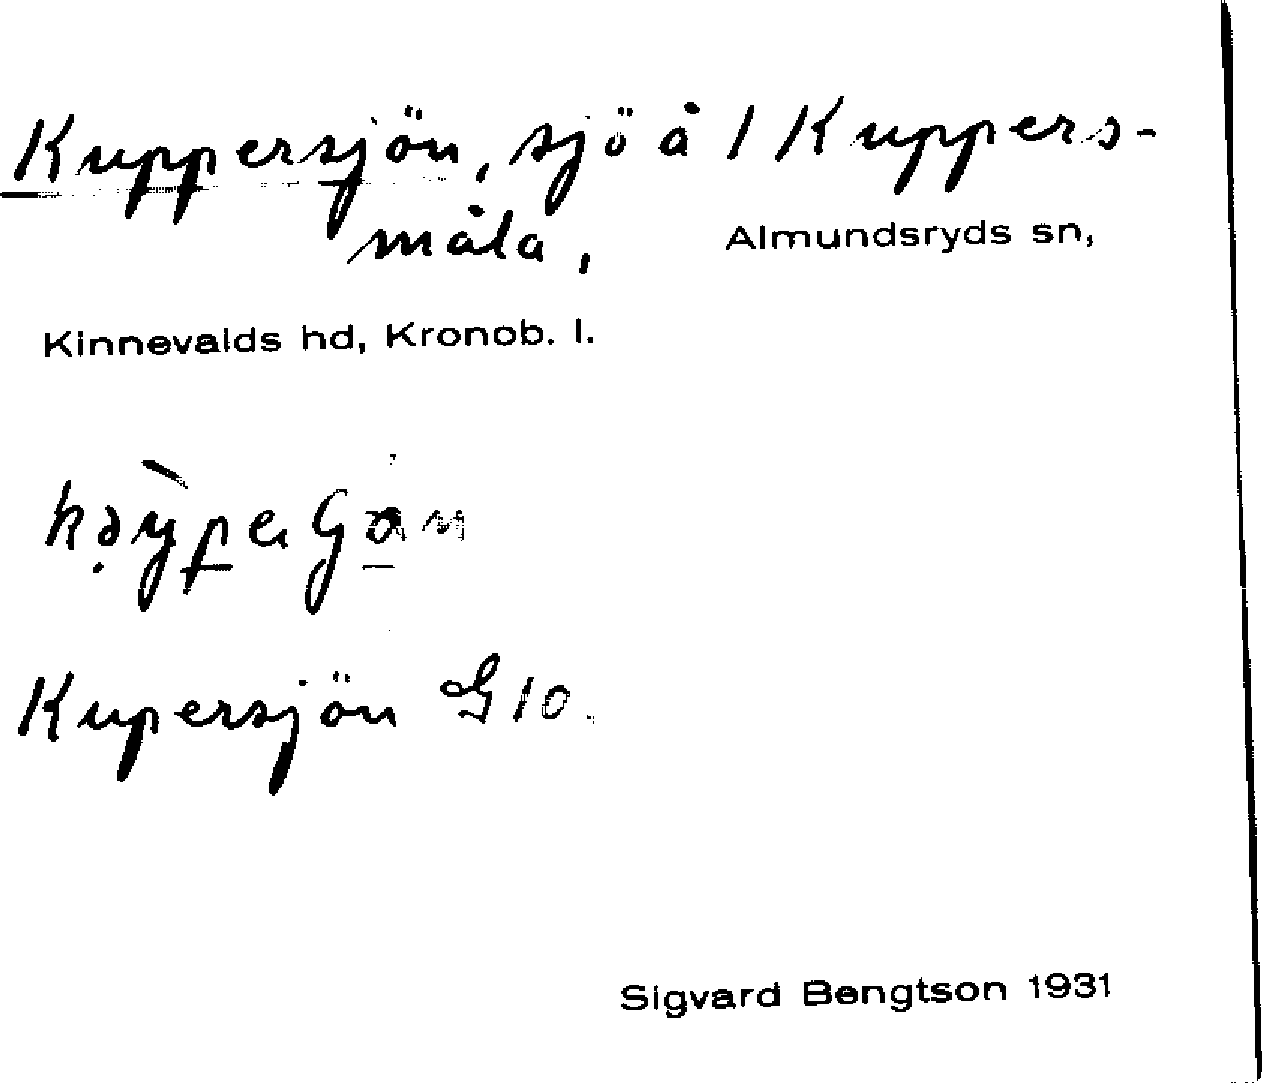 Kuppersjön, sjö å 1 Kuppers-
måla, Almundsryds sn,
Kinnevalds hd, Kronob. l.
Kupersjön G10.
Sigvard Bengtson 1931